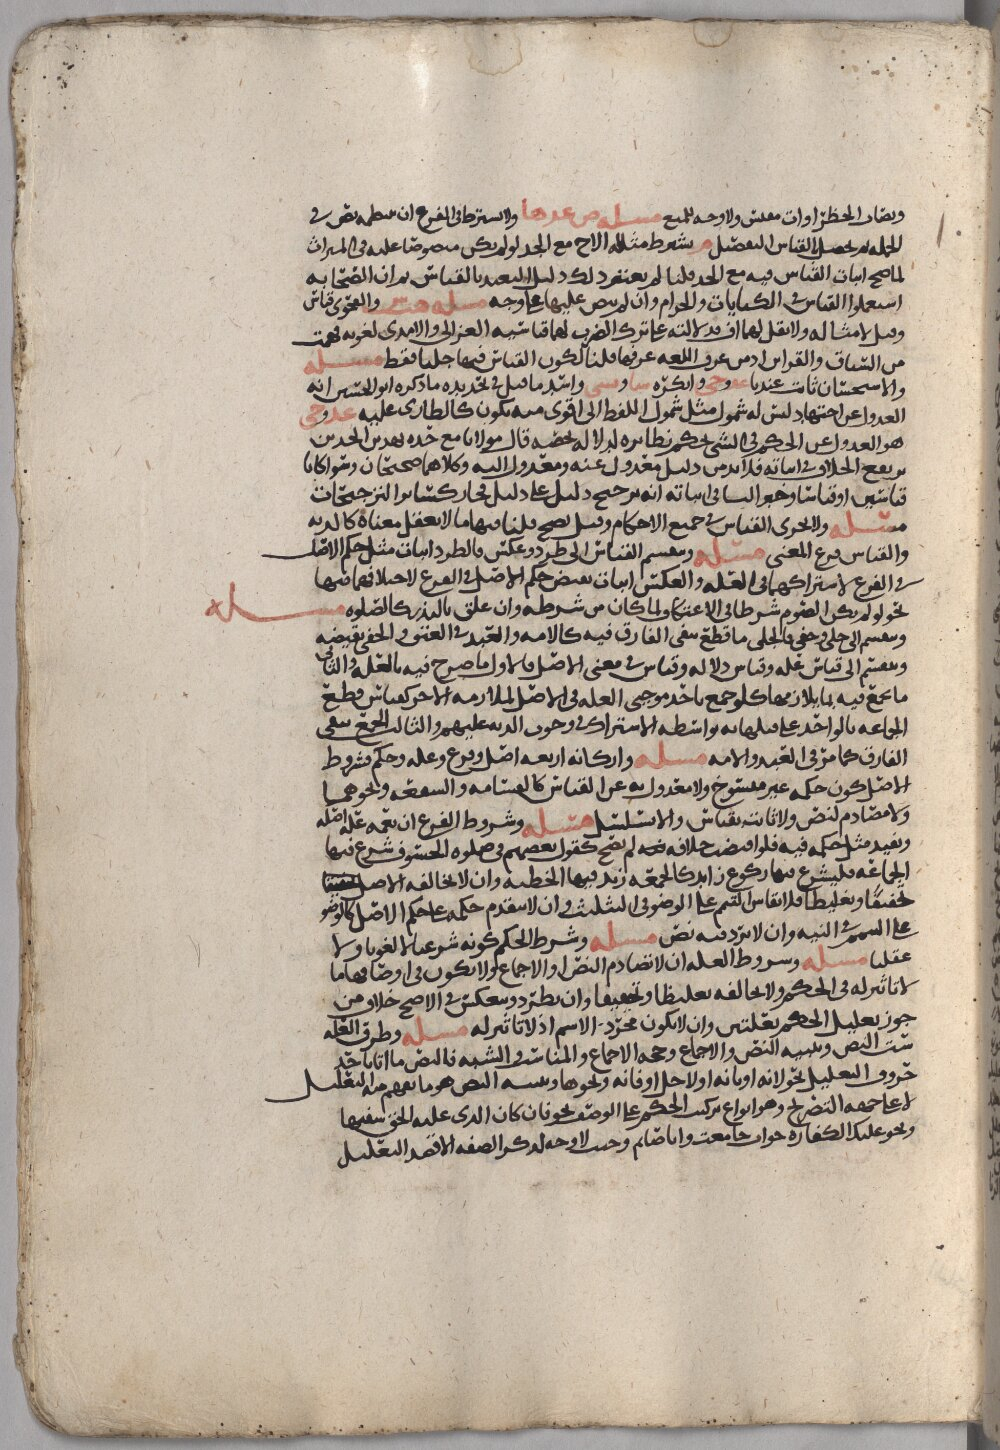 ونصاب الحظر او اب مفلس ولا وجه للمنع مسئله ولا يشترط في الفرع ان يتناوله نص في
الجمله لم يحصل بالقياس التفصيل يشترط مثاله الاخ مع الجد لو لم يكن منصوصا عليه في الميراث
لما صح اثبات القياس فيه مع الجد قلنا لم يعتبر ذلك دليل التعبد بالقياس ثم ان الصحابه
استعملوا القياس في الكنايات والحرام وان لم ينص عليها على وجه مسئله والفحوى قياس
وقيل لا مثاله ولا تقل لهما اف دلالته على ترك الضرب لهما قياسيه الغزالي والامدي لغويه فهمت
من السياق والقراين من عرف اللغه عرفها قلنا لكون القياس فيها جليا فقط مسئله
والاستحسان ثابت عندنا وانكره واشد ما قيل في تحديده ما ذكره ابو الحسين انه
العدول عن اجتهاد ليس له شمول مثل شمول اللفظ الى اقوى منه يكون كالطارى عليه
هو العدول عن الحكم في الشي بحكم نظايره لدلاله تخصه قال مولانا مع حده بهذين الحدين
يرتفع الخلاف في اثباته فلا بد من دليل معدول عنه ومعدول اليه وكلاهما صحيحان وسوا كانا
قياسين او قياسا وخبرا في اثباته انه ترجيح دليل على دليل فجاز كساير الترجيحات
مسئله ولا يجرى القياس في جميع الاحكام وقيل يصح قلنا فيها ما لا يعقل معناه كالديه
والقياس فرع المعنى مسئله وينقسم القياس الى طرد وعكس فالطرد اثبات مثل حكم الاصل
في الفرع لاشتراكهما في العله والعكس اثبات نقيض حكم الاصل في الفرع لاختلافهما فيها
نحو لو لم يكن الصوم شرطا في الاعتكاف لما كان من شرطه وان علق بالنذر كالصلوه مسئله
وينقسم الى جلي وخفي فالجلي ما قطع بنفي الفارق فيه كالامه والعبد في العتق والخفي نقيضه
وينقسم الى قياس عله وقياس دلاله وقياس في معنى الاصل فالاول ما صرح فيه بالعله والثاني
ما يجمع فيه بما يلازمها كلو جمع باحد موجبي العله في الاصل لملازمه الاخر كقياس قطع
الجماعه بالواحد على قتلها به بواسطه الاشتراك في وجوب الديه عليهم والثالث الجمع بنفي
الفارق كما مر في العبد والامه مسئله واركانه اربعه اصل وفرع وعله وحكم فشروط
الاصل كون حكمه غير منسوخ ولا معدول به عن القياس كالقسامه والشفعه ونحوهما
ولا مصادم لنص ولا ثابت بقياس والا تسلسل مسئله وشروط الفرع ان تعمه عله اصله
ويفيد مثل حكمه فيه فلو اقتضت خلافه لم يصح كقول بعضهم في صلوه الخسوف شرع فيها
الجماعه فليشرع فيها ركوع زايد كالجمعه زيد فيها الخطبه وان لا يخالفه الاصل
تخفيفا وتغليظا فلا يقاس التيمم على الوضو في التثليث وان لا يتقدم حكمه على حكم الاصل كالوضو
على التيمم في النيه وان لا يرد فيه نص مسئله وشرط الحكم كونه شرعيا لا لغويا ولا
عقليا مسئله وشروط العله ان لا تصادم النص او الاجماع ولا يكون في اوصافها ما
لا تاثير له في الحكم ولا تخالفه تغليظا وتخفيفا وان تطرد وتنعكس في الاصح خلاف من
جوز تعليل الحكم بعلتين وان لا يكون مجرد الاسم اذ لا تاثير له مسئله وطرق العله
ست النص وتنبيه النص والاجماع وحجه الاجماع والمناسب والشبه فالنص ما اتا باحد
حروف التعليل نحو لانه او بانه او لاجل او فانه ونحوها وتنبيه النص هو ما يفهم منه التعليل
لا على جهه التصريح وهو انواع ترتيب الحكم على الوصف نحو فان كان الذي عليه الحق سفيها
ونحو عليك الكفاره جواب جامعت وانا صايم وحيث لا وجه لذكر الصفه الا قصد التعليل